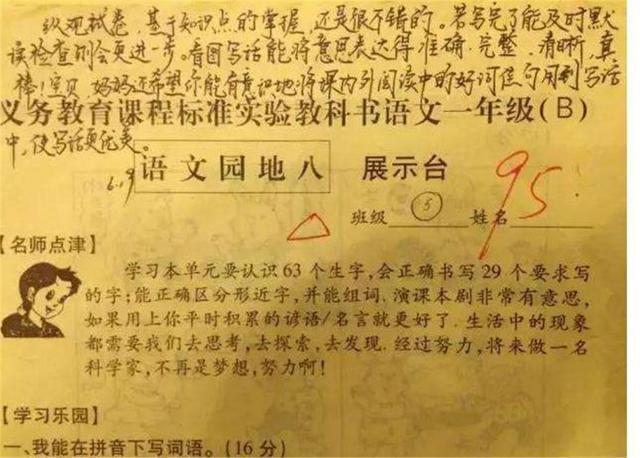 纵观试卷,基于知识点的掌握,还是很不错的。若写完了能及时默
读检查则会更进一步。看图写话能将意思表达得准确.完整.清晰,真
棒!宝贝,妈妈还希望你能有意识地将课内外阅读中的好词佳句用到写话
义务教育课程标准实验教科书语文一年级(B)
中,使写话更优美。
6.19
语文园地八 展示台
95
班级 5 姓名
【名师点津】
学习本单元要认识63个生字,会正确书写29个要求写
的字;能正确区分形近字,并能组词.演课本剧非常有意思,
如果用上你平时积累的谚语/名言就更好了.生活中的现象
都需要我们去思考,去探索,去发现.经过努力,将来做一名
科学家,不再是梦想,努力啊!
【学习乐园】
一、我能在拼音下写词语。(16分)